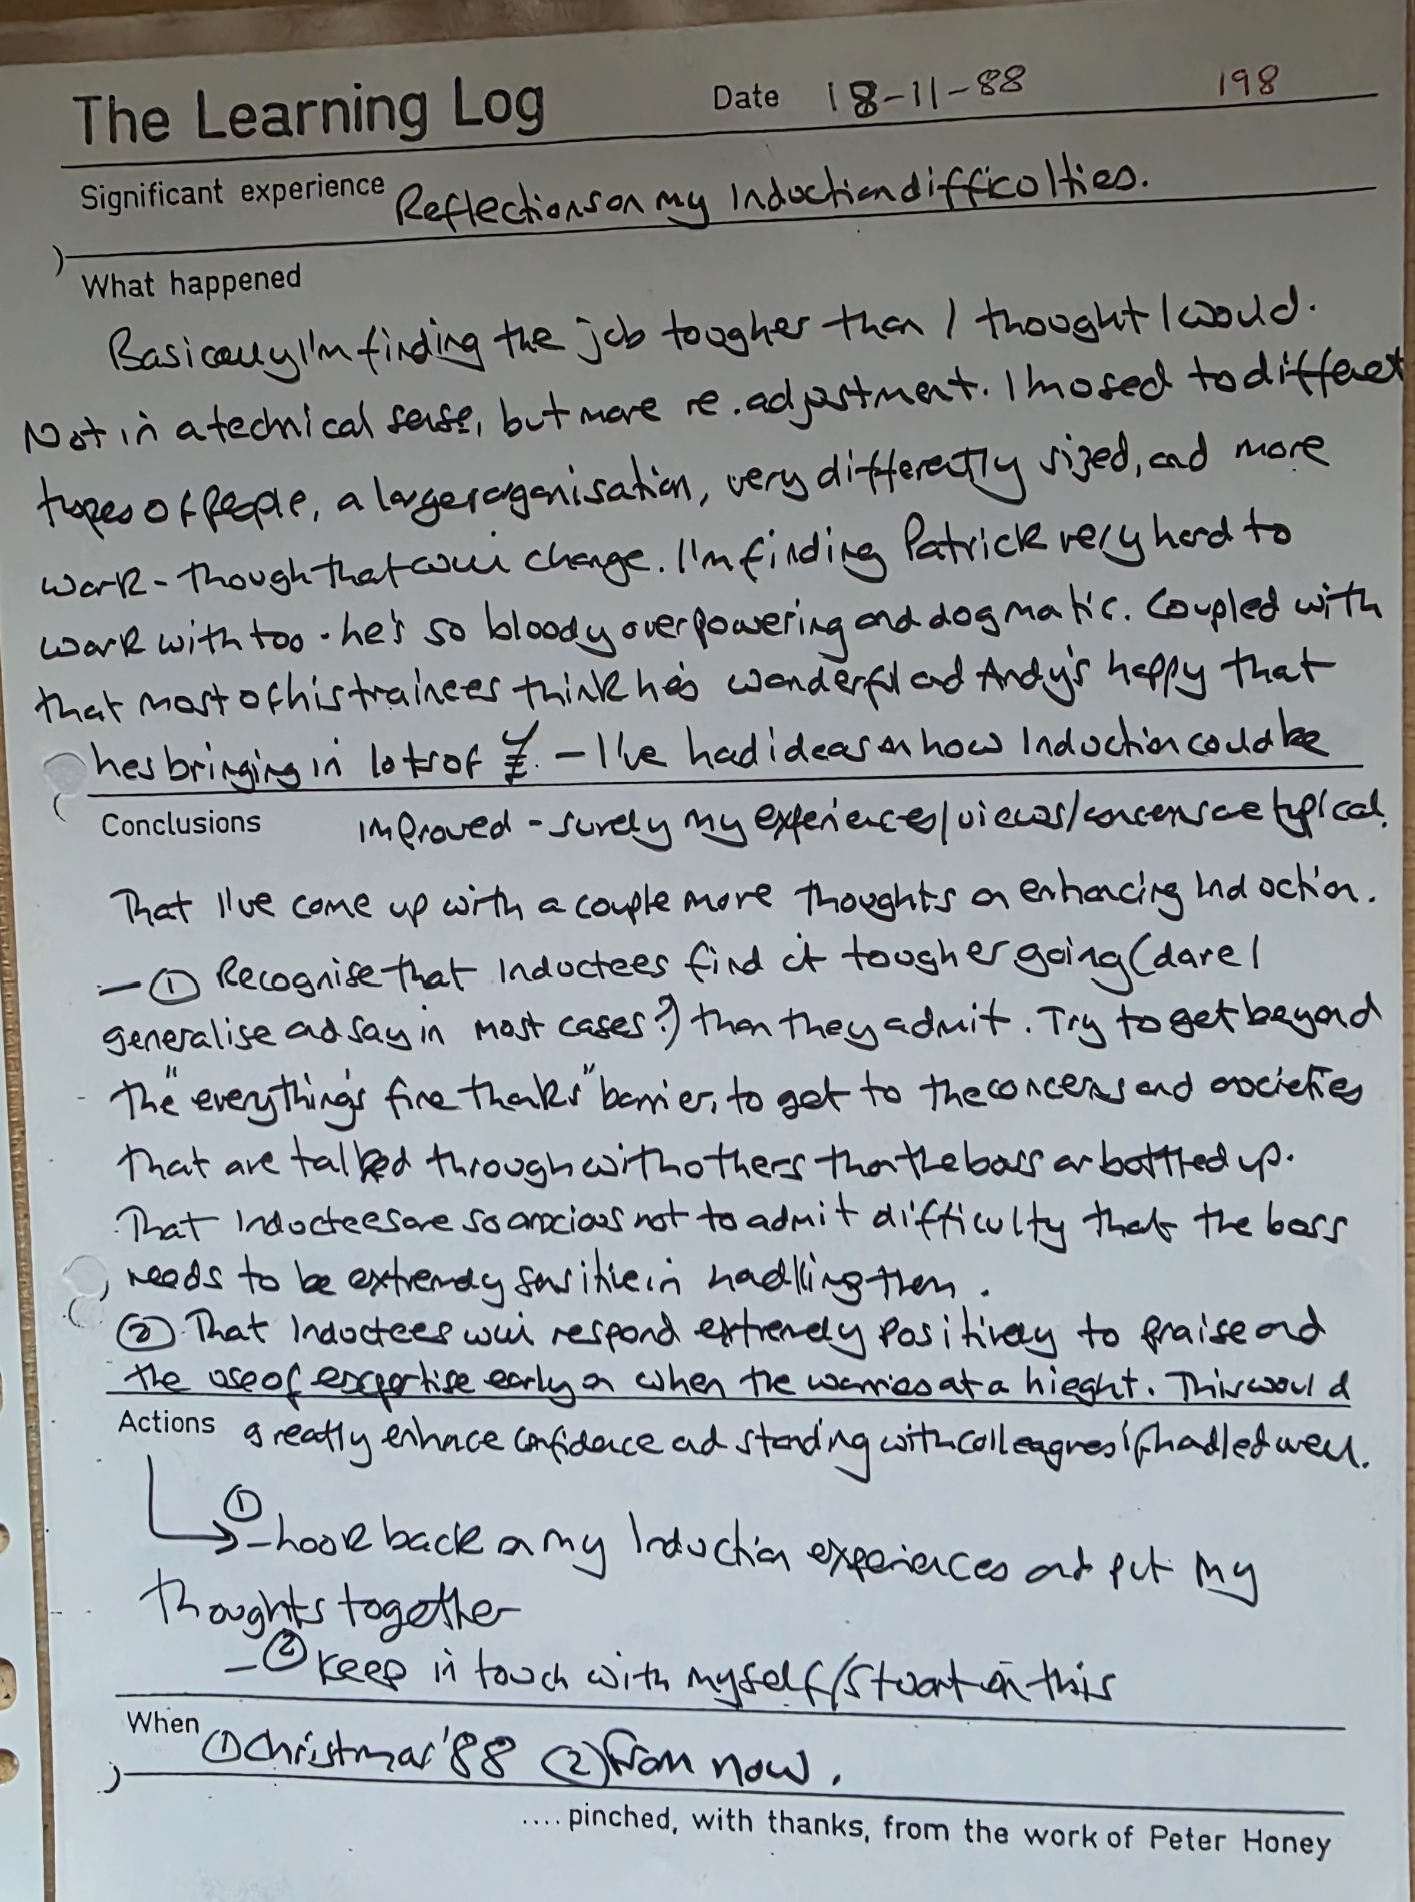 The Learning Log Date 18-11-88 198
Significant experience Reflections on my Induction difficulties.
What happened
Basically I'm finding the job tougher than I thought I would.
Not in a technical sense, but more re. adjustment. I'm used to different
types of people, a larger organisation, very differently sized, and more
work - though that will change. I'm finding Patrick very hard to
work with too - he's so bloody overpowering and dogmatic. Coupled with
that most of his trainees think he's wonderful and Andy's happy that
he's bringing in lots of £. - I've had ideas on how Induction could be
Conclusions improved - surely my experiences/views/concerns are typical.
That I've come up with a couple more thoughts on enhancing Induction.
- ① Recognise that Inductees find it tougher going (dare I
generalise and say in most cases?) than they admit. Try to get beyond
the "everything's fine thanks" barrier, to get to the concerns and anxieties
that are talked through with others than the boss or bottled up.
That Inductees are so anxious not to admit difficulty that the boss
needs to be extremely sensitive in handling them.
② That Inductees will respond extremely positively to praise and
the use of expertise early on when the worries at a hieght. This would
Actions greatly enhance confidence and standing with colleagues if handled well.
① - Look back on my Induction experiences and put my
thoughts together
- ② Keep in touch with myself/Stuart on this
When ① Christmas '88 ② From now.
.... pinched, with thanks, from the work of Peter Honey